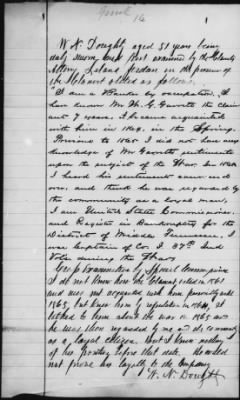 16
W. N. Doughty aged 51 years being
duly sworn and first examined by the Claimants
Attorney Leland Jordan in the presence of
the Claimant stated as follows,
"I am a by occupation, I
have known Mr. Wm. G. Garrett the claim
ant 7 years. I became acquainted
with him in 1864, in the Spring.
Previous to 1865 I did not have any
knowledge of Mr Garretts sentiments
upon the subject of the War. In 1865
I heard his sentiments over and
over, and think he was regarded by
the community as a loyal man,
I am United States Commissioner,
and Register in Bankruptcy for the
District of Middle Tennessee, I
was Captain of Co. I 37th Ind
Vols during the War"
Cross Examination by Special Commissioner
I do not know how the Claimant voted in 1861
and was not acquainted with him personally until
1865, but knew him by reputation in 1864, I
talked to him about the war in 1865 and
he was then regarded by me and the community
as a loyal citizen. But I know nothing
of his prior to that date. He could
not prove his loyalty to the Company
W. N. Doughty